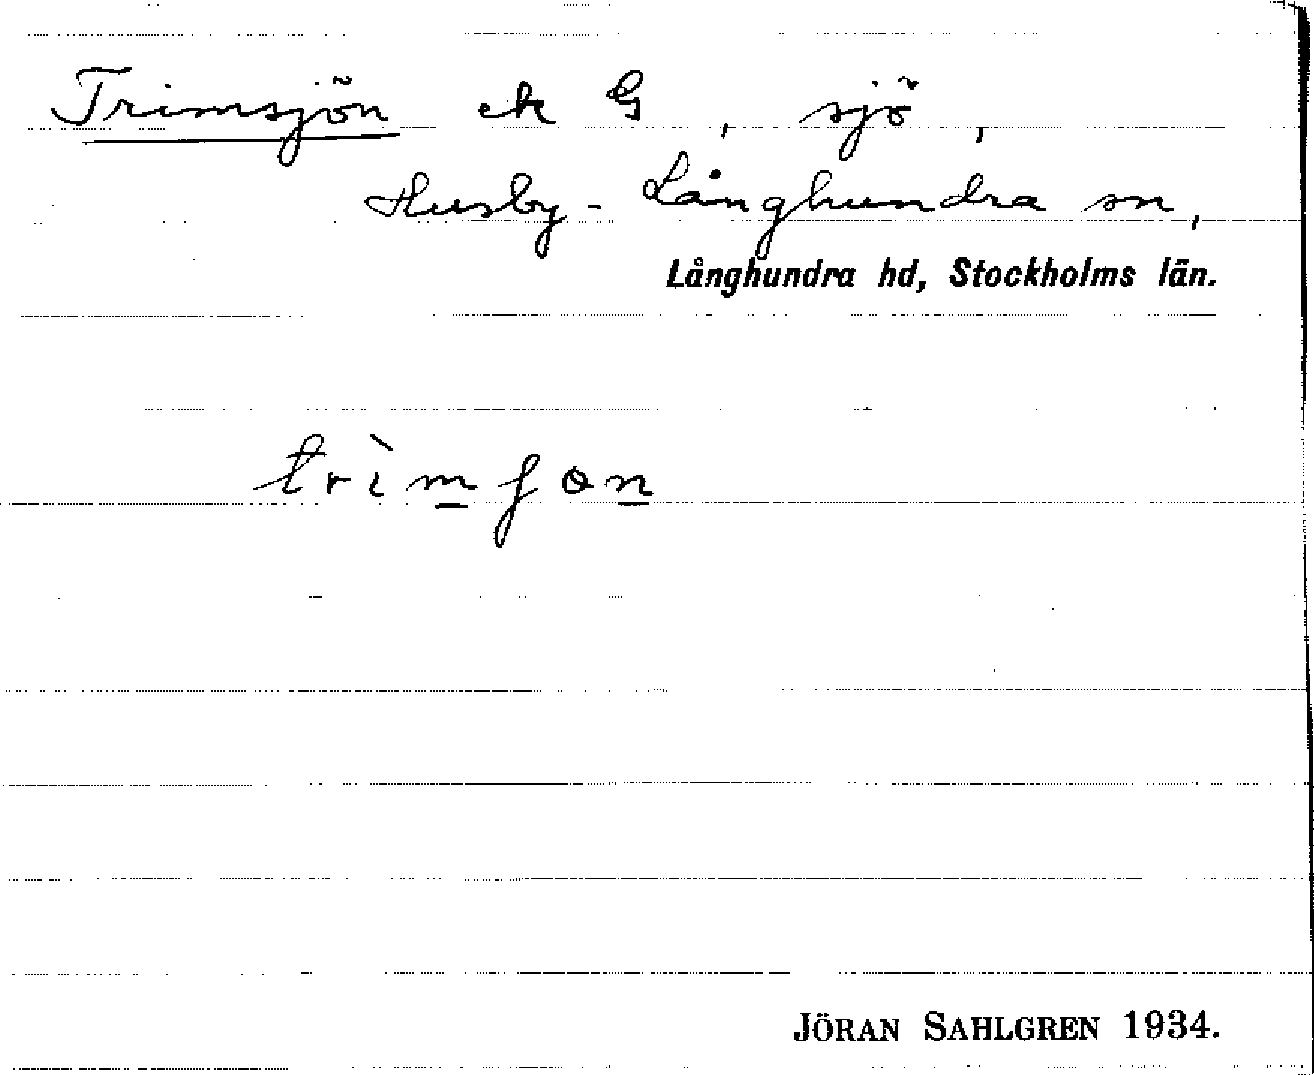 Trimsjön ek G, sjö,
Husby-Långhundra sn,
Långhundra hd, Stockholms län.
trìmʃɵn
JÖRAN SAHLGREN 1934.